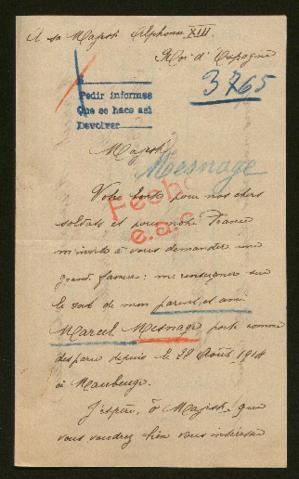 A sa Majesté Alphonse XIII
Roi d'Espagne
3765
Pedir informes
Que se hace así
Devolver
Majesté
Mesnage
Votre bonté pour nos chers
soldats et pour notre France
m'invite à vous demander une
grande faveur : me renseigner sur
le sort de mon parent et ami
Marcel Mesnage porté comme
disparu depuis le 28 Août 1914
à Maubeuge.
J'espère, ô Majesté, que
vous voudrez bien vous intéresser